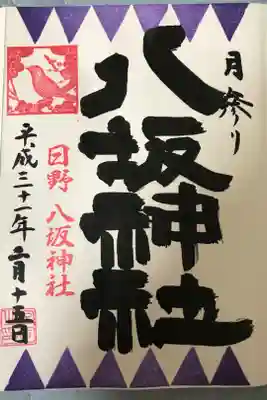 月参り
八坂神社
日野 八坂神社
平成三十一年 二月十五日